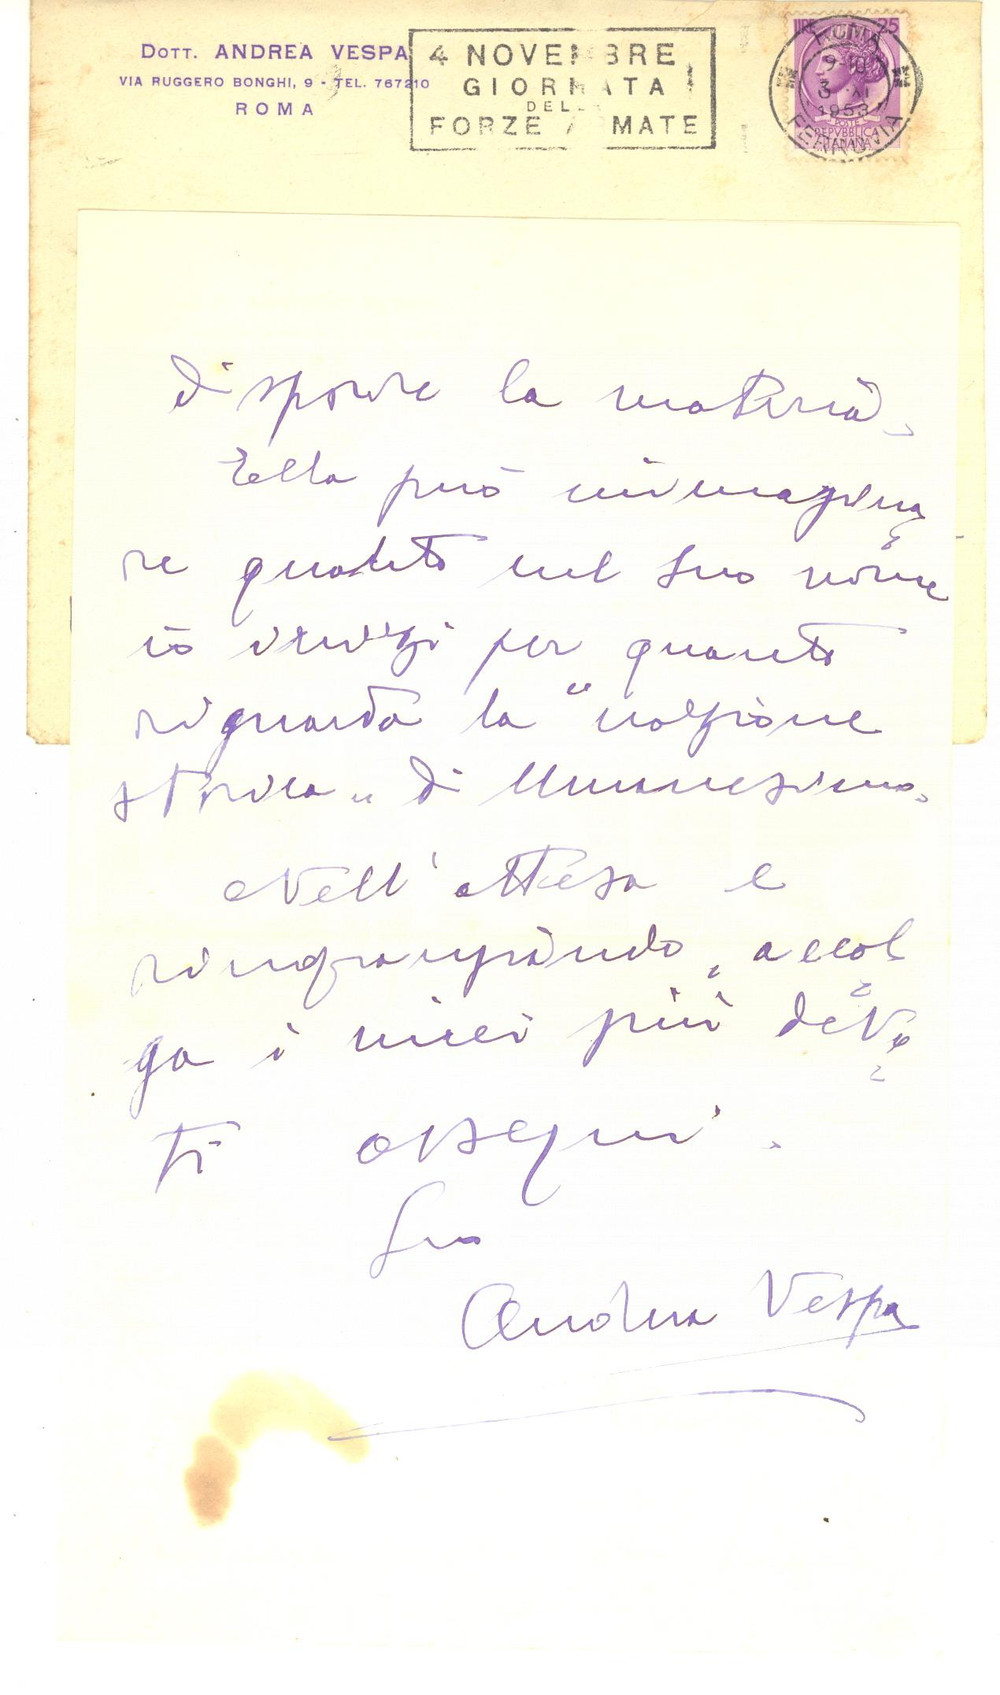 DOTT. ANDREA VESPA
VIA RUGGERO BONGHI, 9 - TEL. 767210
ROMA
4 NOVEMBRE
GIORNATA
DELLE
FORZE ARMATE
LIRE 25
ROMA
3 XI
1953
FERROVIA
POSTE
REPVBBLICA
ITALIANA
disporre la materia.
Ella può immagina
re quanto nel Suo nome
io per quanto
riguarda la "nozione
storica" di Umanesimo.
Nell'attesa e
ringraziando, accol
ga i miei più devo
ti ossequi.
Suo
Andrea Vespa